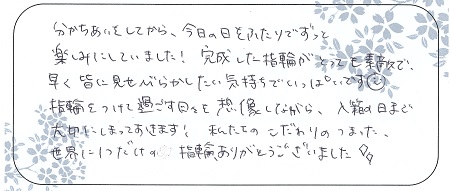 分かちあいをしてから、今日の日をふたりでずっと
楽しみにしていました! 完成した指輪がとっても素敵で、
早く皆に見せびらかしたい気持ちでいっぱいです
指輪をつけて過ごす日々を想像しながら、入籍の日まで
大切にしまっておきます! 私たちのこだわりのつまった、
世界に1つだけの 指輪ありがとうございました